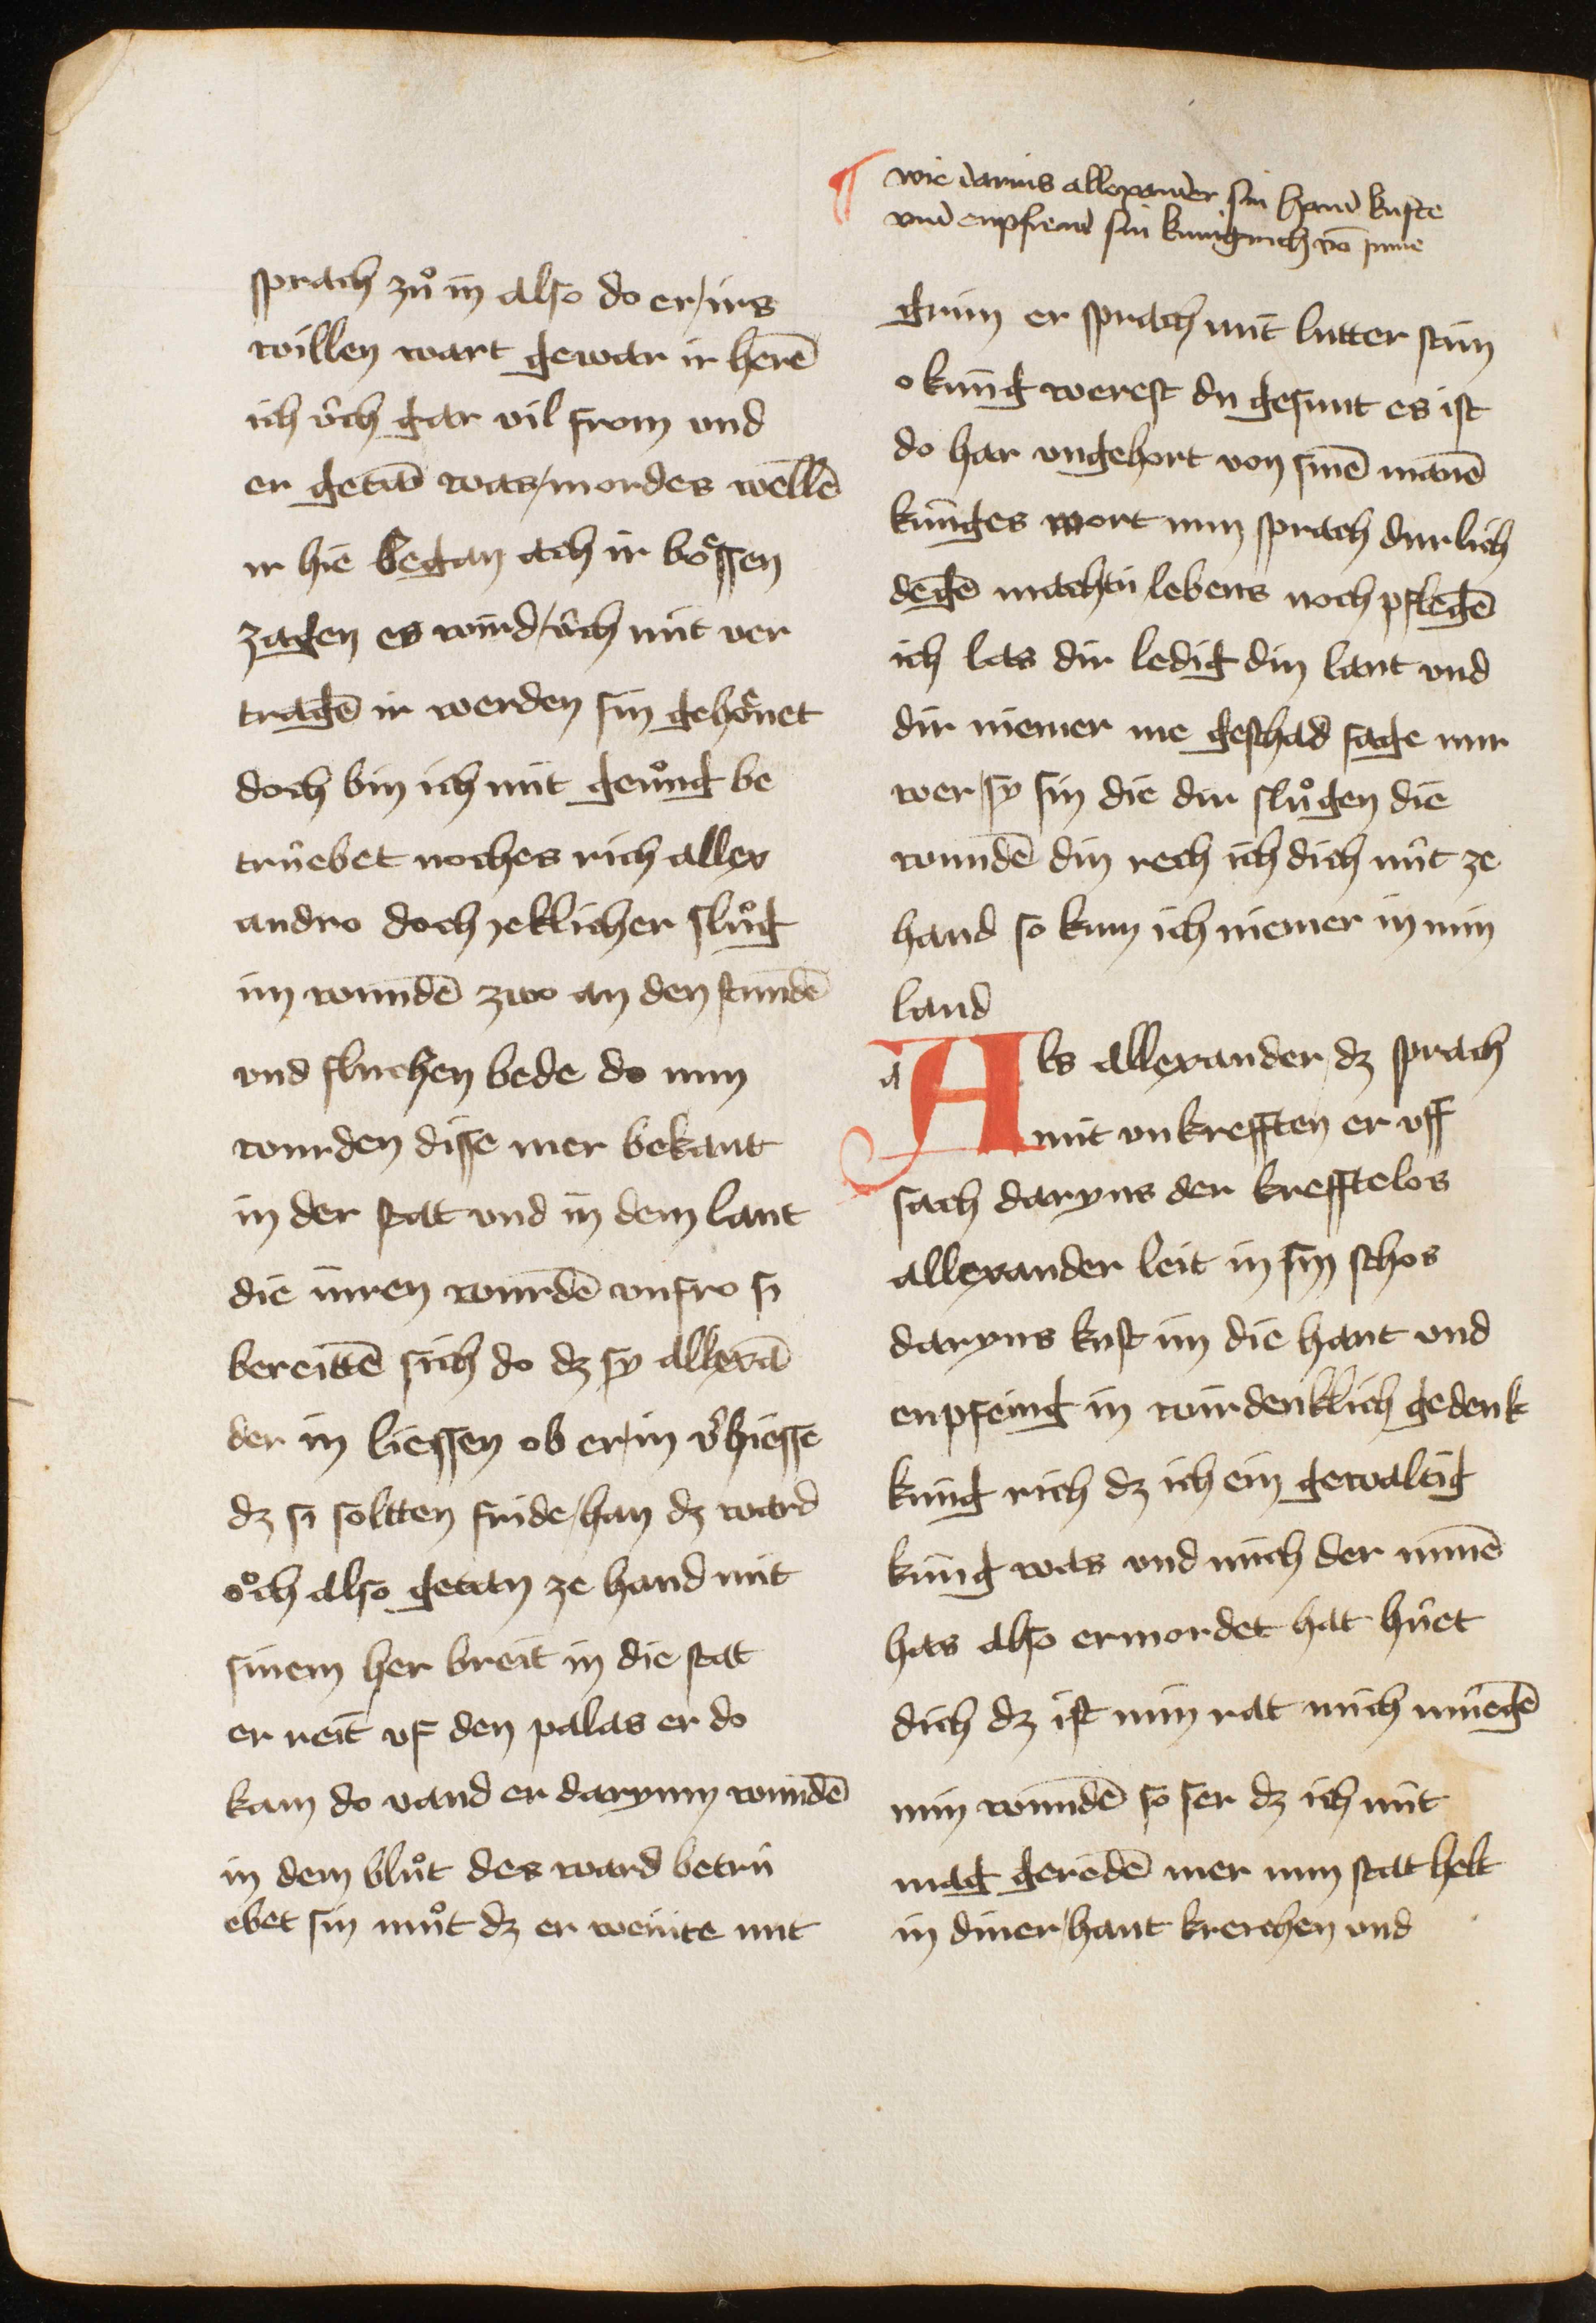 sprach zuͦ in also do er irs
willen wart gewar ir herē
ich v̂ch gar vil from vnd
er getā was mordes wellē
ir hie began ach ir boͤssen
zagen es wird v̂ch nit ver
tragē ir werden sin gehoͤnet
doch bin ich nit genuͦng be
truͤebet noches rich allex
andro doch jeklicher sluͦg
im wundē zwo an den stundē
vnd fluchen bede do nun
wurden disse mer bekant
in der stat vnd in dem lant
die iuren wurdē vnfro si
bereittē sich do dz sy allexā
der in liessen ob er in v̓hiesse
dz si soltten fride han dz ward
oͦch also getan ze hand mit
sinem her breit in die stat
er reit vf den palas er do
kam do vand er daryum wundē
in dem bluͦt des ward betruͤ
ebet sin muͦt dz er weinte mit
¶ wie darius allexander sin hand kuste
vnd enpfieng sin kungrich vō imme
grim er sprach mit lutter stim
o kung werest du gesunt es ist
do har vngehort von sinē manē
kunges wort nun sprach dur lich
degē machtu lebens noch pflegē
ich las dir ledig din lant vnd
dir niemer me geschad sage mir
wer sy sin die dir sluͦgen die
wundē din rech ich dich nuͤt ze
hand so kum ich niemer in min
land
a Als allexander dz sprach
mit vnkrefften er vff
sach daryus der krefftelos
allexander leit in sin schos
daryus kust im die hant vnd
enpfeing in wirdenklich gedenk
kung rich dz ich ein gewaltig
kung was vnd mich der minē
has also ermordet hat huͤet
dich dz ist min rat mich muͤegē
min wundē so ser dz ich nit
mag geredē mer min stat helt
in diner hant kreichen vnd